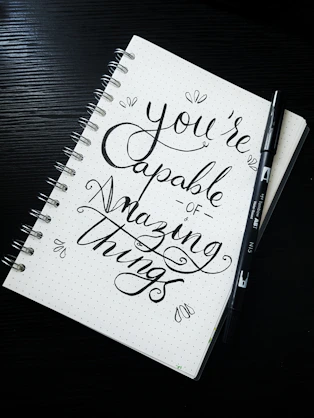 you're
Capable
- OF -
Amazing
things